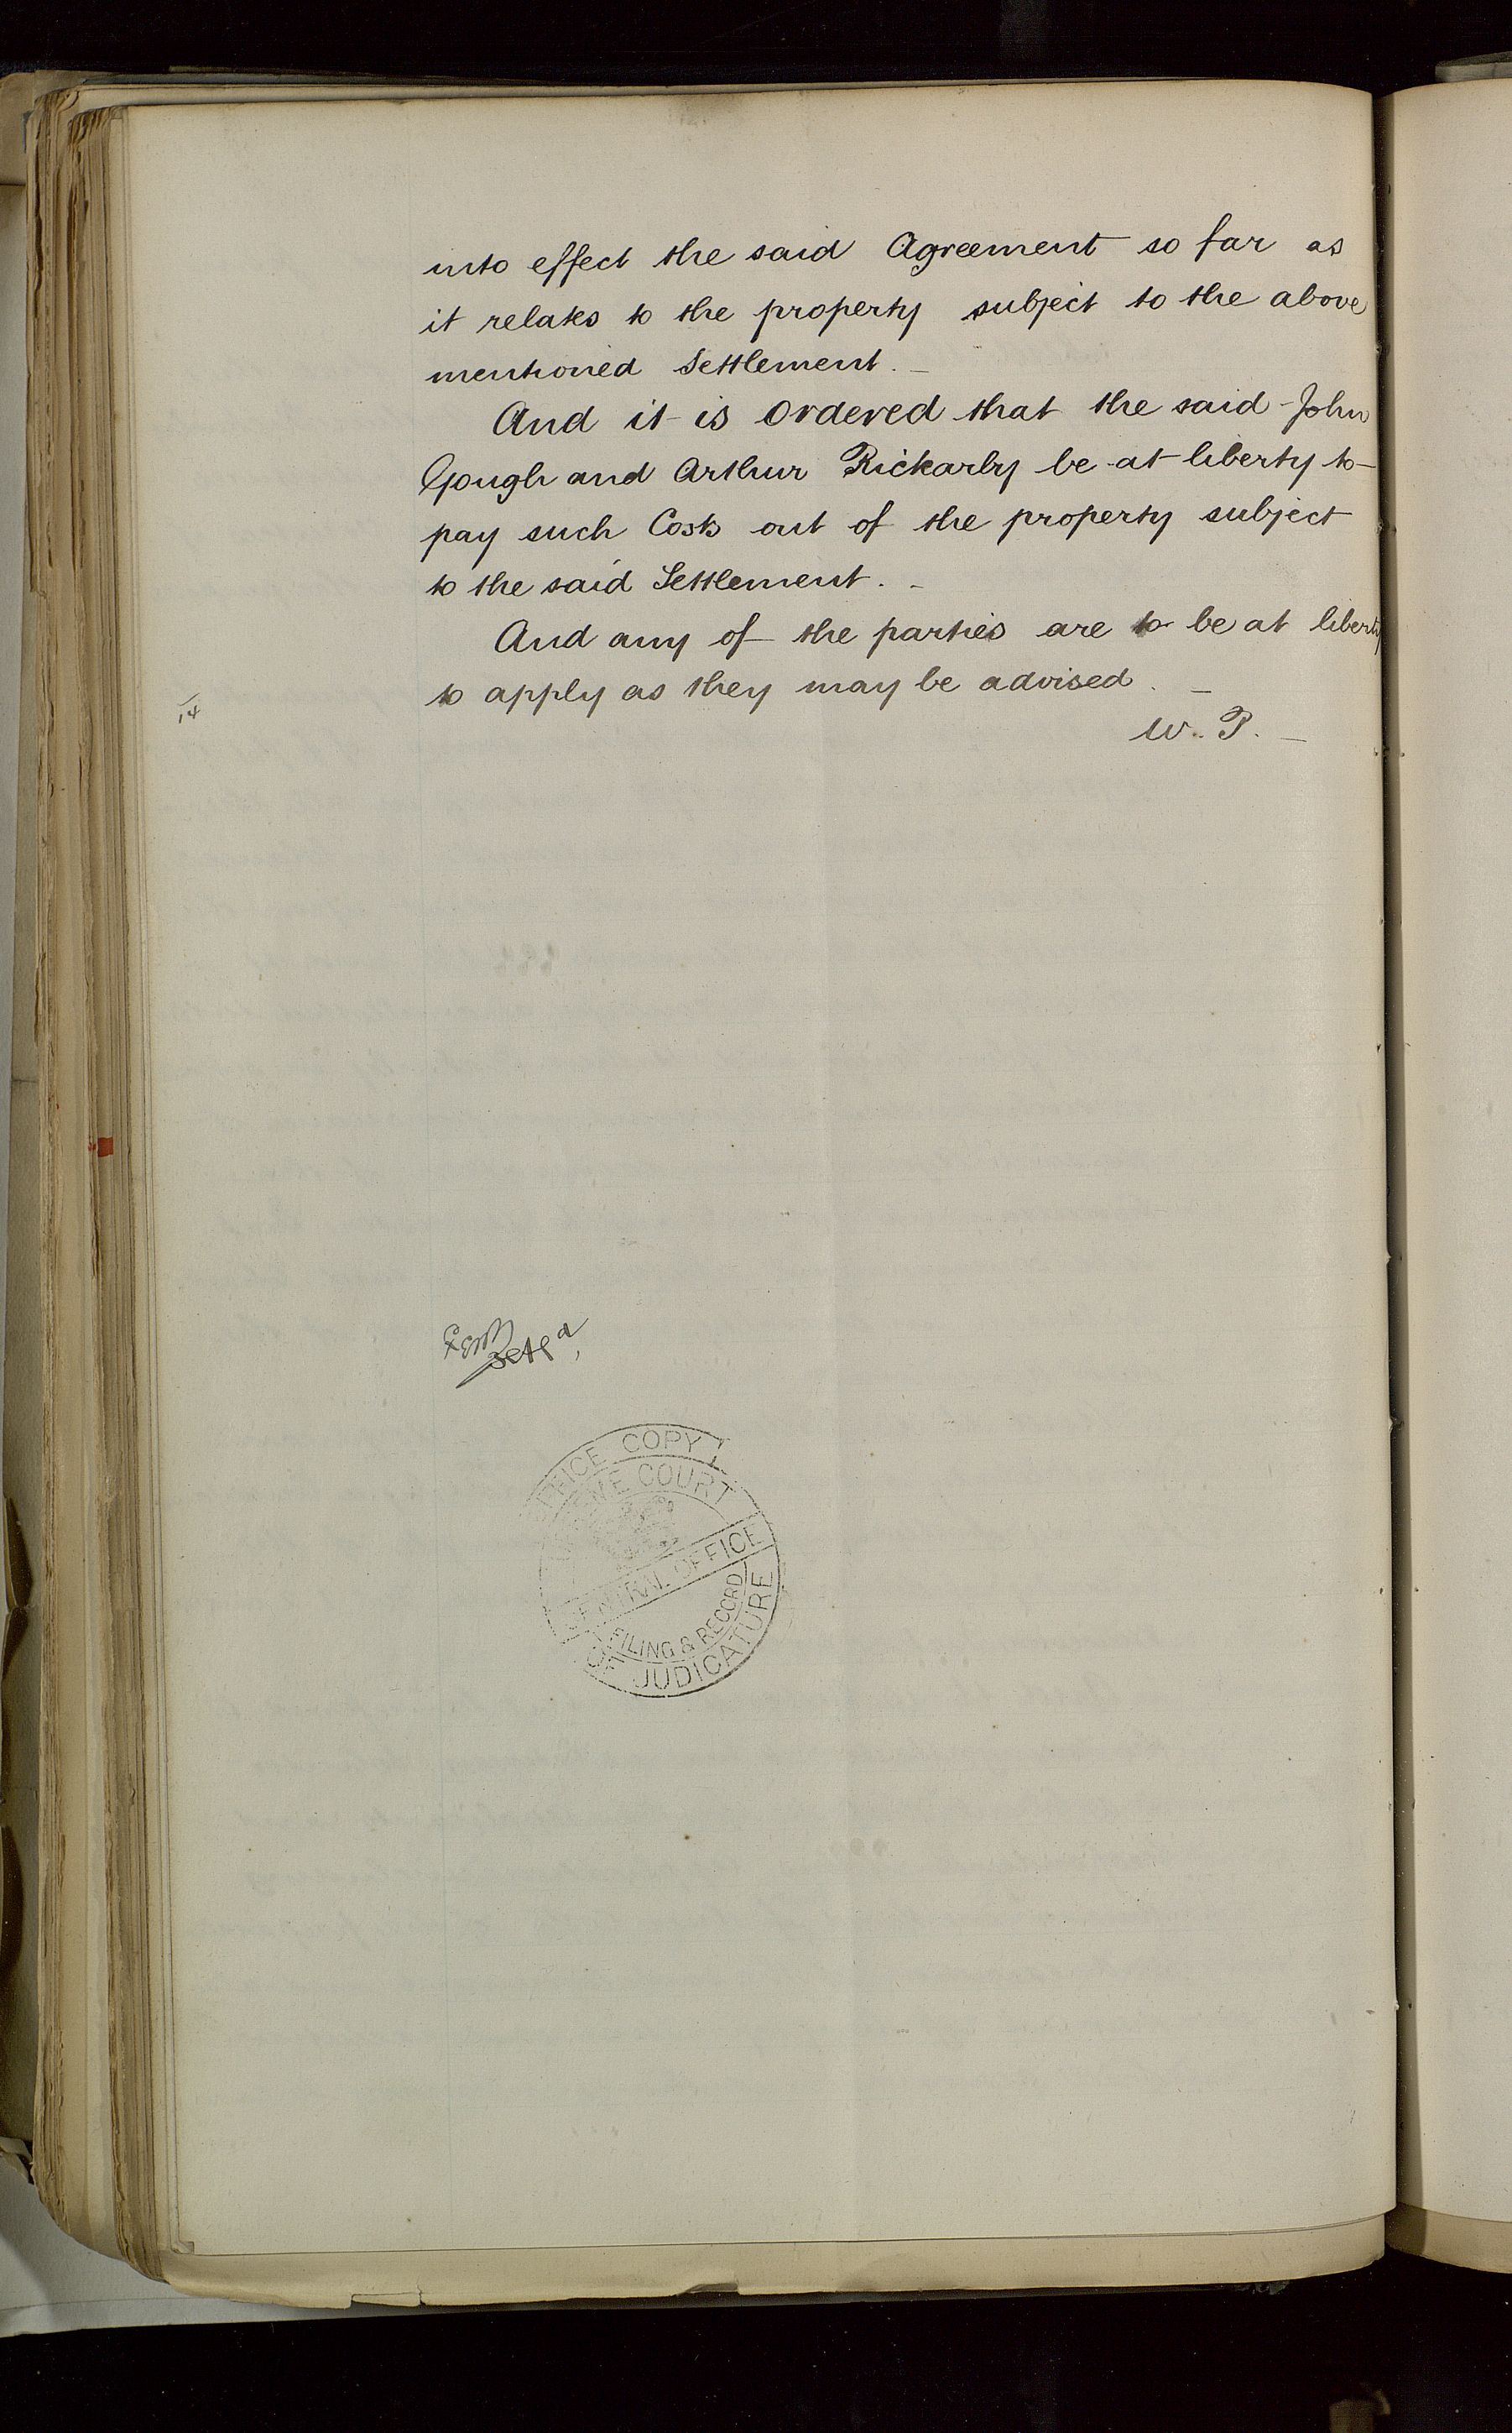 into effect the said Agreement so far as
it relates to the property subject to the above
mentioned Settlement. –
And it is Ordered that the said John
Gough and Arthur Rickarby be at liberty to
pay such Costs out of the property subject
to the said Settlement. –
And any of the parties are to be at liberty
to apply as they may be advised. –
W. P. –
14
OFFICE COPY
SUPREME COURT
CENTRAL OFFICE
FILING & RECORD
OF JUDICATURE